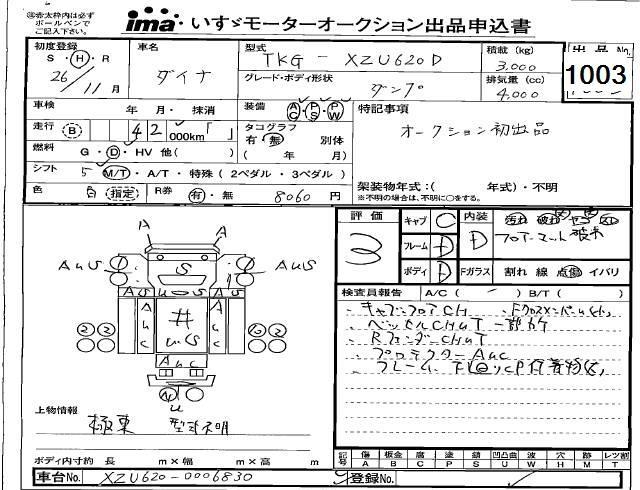 ㊟赤太枠内は必ず
ボールペンで
ご記入下さい。
ima いすゞモーターオークション出品申込書
初度登録 S・H・R 26年11月
車名 ダイナ
型式 TKG-XZU620D
グレード・ボディ形状 ダンプ
積載 (kg) 3,000
排気量 (cc) 4,000
出品No.
1003
車検 年 月・抹消
装備 AC・PS・PW
特記事項
オークション初出品
走行 B 42 000km「 」
タコグラフ 有・無 別体
( 年 月)
燃料 G・D・HV 他( )
シフト 5 M/T・A/T・特殊(2ペダル・3ペダル)
架装物年式:( 年式)・不明
※不明の場合は、不明に○をする。
色 白 指定 R券 有・無 8060 円
評価 3
キャブ C
フレーム D
ボディ D
内装 D
フロアーマット破れ
Fガラス 割れ 線 点傷 イバリ
検査員報告 A/C ( - ) B/T ( )
ベッセルCHUT一部カケ
RフェンダーCHUT
プロテクターAUC
A A
AUS S AUS
AUS U S AUS
AUC 井 US AUC
AUC
U
上物情報
極東 型式不明
ボディ内寸約 長 m×幅 m×高 m
記号 傷A 板金B 腐C 塗P 錆S 凹凸曲U 波W 穴H 跡M レツ割T
車台No. XZU620-0006830
登録No.